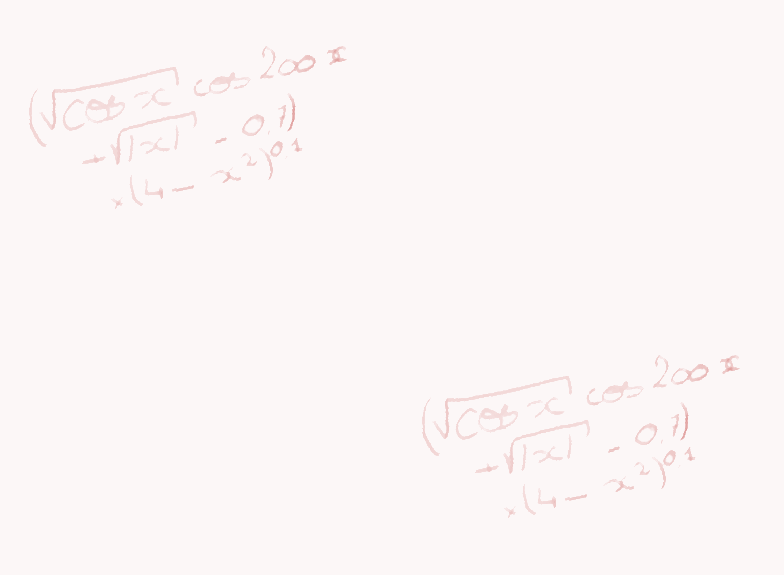 (√cos x cos 200 x
+ √|x| - 0.7)
×(4 - x²)^0.1
(√cos x cos 200 x
+ √|x| - 0.7)
×(4 - x²)^0.1